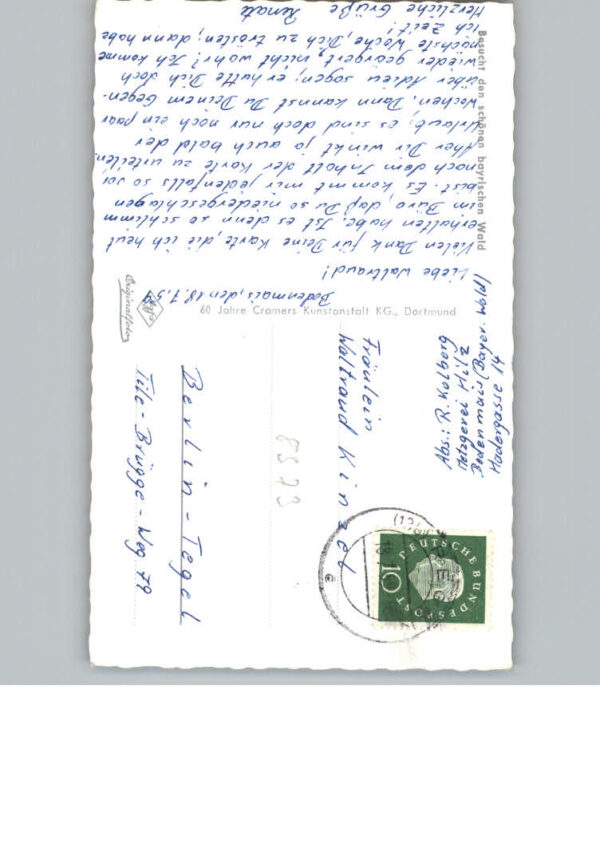 Bodenmais, den 18.7.59
Liebe Waltraud!
Vielen Dank für Deine Karte, die ich heut
erhalten habe. Ist es denn so schlimm
im Büro, daß Du so niedergeschlagen
bist. Es kommt mir jedenfalls so vor
nach dem Inhalt der Karte zu urteilen.
Aber Dir winkt ja auch bald der
Urlaub; es sind doch nur noch ein paar
Wochen. Dann kannst Du Deinem Gegen-
über Adieu sagen; er hatte Dich doch
wieder geärgert, nicht wahr? Ich komme
nächste Woche, Dich zu trösten; dann habe
ich Zeit!
Herzliche Grüße Renate
Besucht den schönen bayrischen Wald
60 Jahre Cramers Kunstanstalt KG., Dortmund
Agfa
Originalfoto
Abs.: R. Kolberg
Metzgerei Hilz
Bodenmais (Bayer. Wald)
Hadergasse 14
DEUTSCHE BUNDESPOST
10
Fräulein
Waltraud Kinzel
8573
Berlin-Tegel
Tile-Brügge-Weg 79